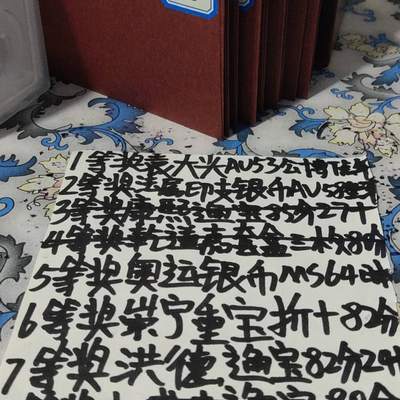 1等奖袁大头AU53公博
2等奖法属印支银币AU5
3等奖康熙通宝85分27十
4等奖乾隆志套盒三枚80分
5等奖奥运银币MS64
6等奖崇宁重宝折十82分
7等奖洪德通宝82分24